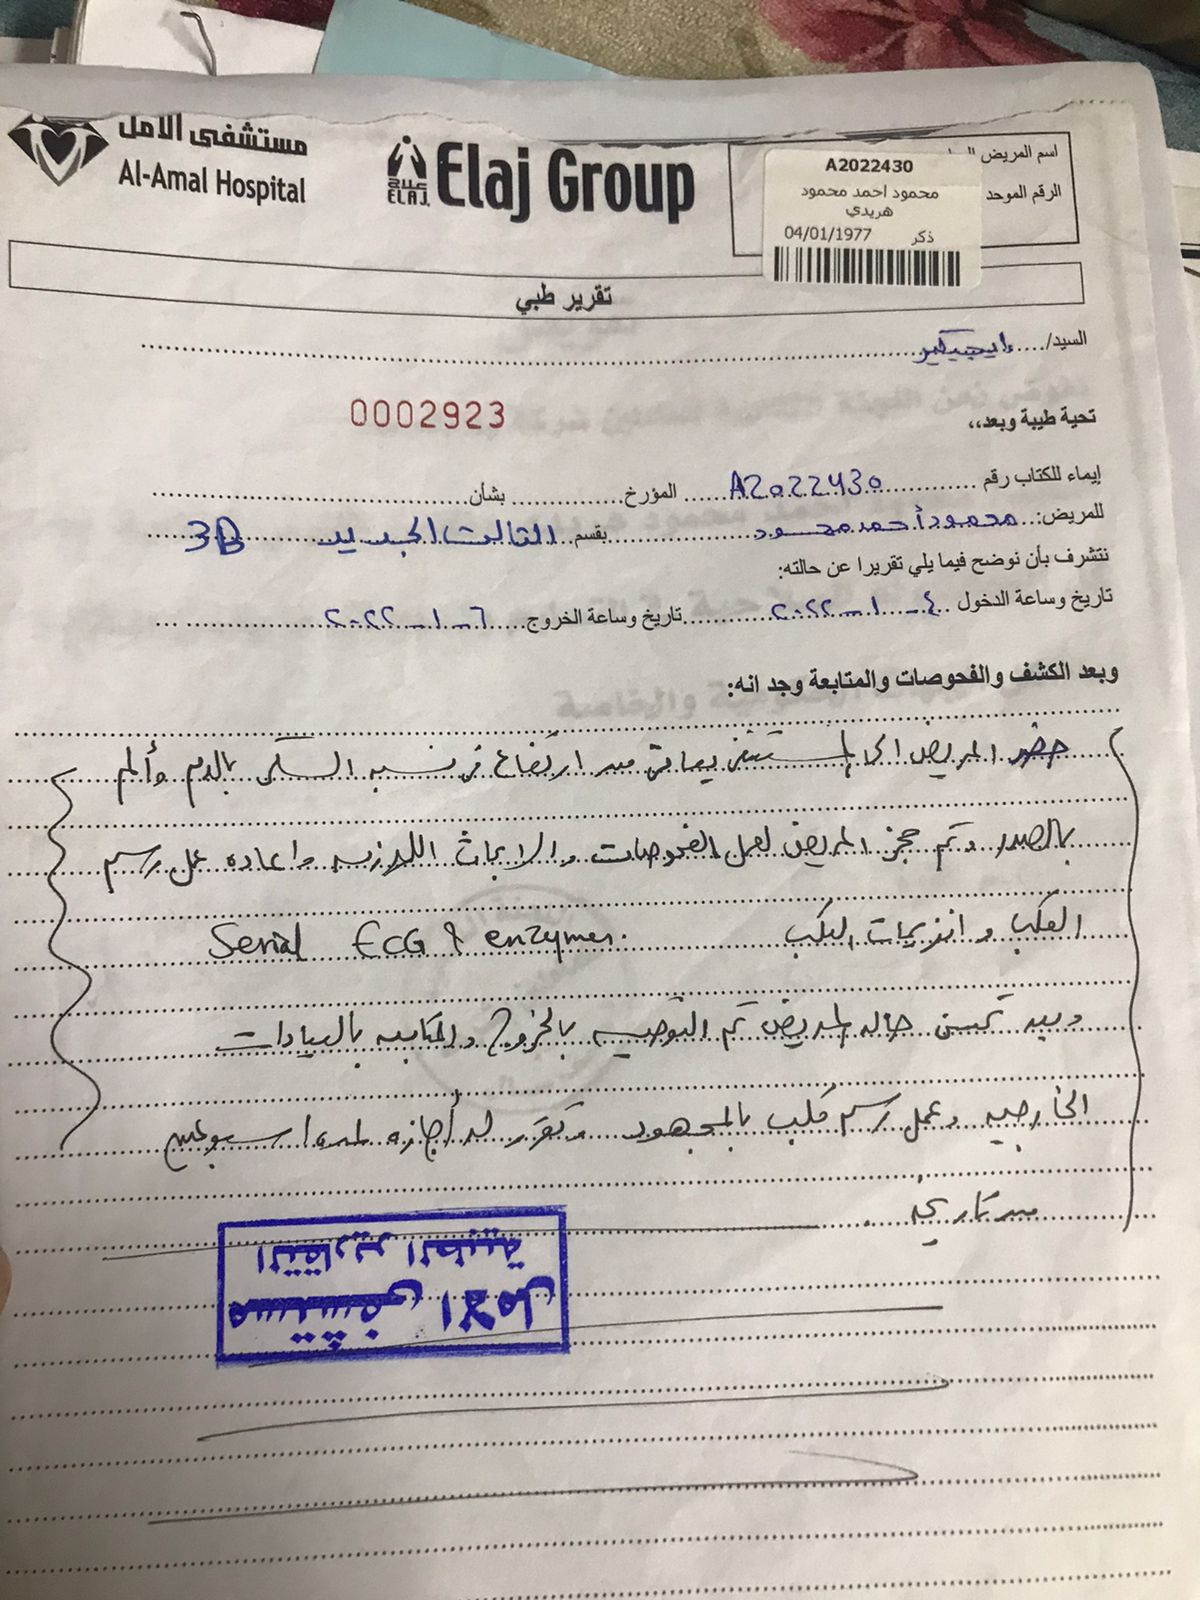 مستشفى الأمل
Al-Amal Hospital
علاج
ELAJ
Elaj Group
اسم المريض
الرقم الموحد
A2022430
محمود احمد محمود
هريدي
ذكر 04/01/1977
تقرير طبي
السيد/
0002923
تحية طيبة وبعد،،
إيماء للكتاب رقم A2022430 المؤرخ بشأن
للمريض: محمود أحمد محمود بقسم الثالث الجديد 3B
نتشرف بأن نوضح فيما يلي تقريرا عن حالته:
تاريخ وساعة الدخول ٤-١-٢٠٢٢ تاريخ وساعة الخروج ٦-١-٢٠٢٢
وبعد الكشف والفحوصات والمتابعة وجد انه:
حضر المريض الى المستشفى يعانى من ارتفاع فى نسبه السكر بالدم وألم
بالصدر وتم حجز المريض لعمل الفحوصات والابحاث اللازمه واعاده عمل رسم
القلب وانزيمات القلب Serial ECG & enzymes.
وبعد تحسن حاله المريض تم التوصيه بالخروج والمتابعه بالعيادات
الخارجيه وعمل رسم قلب بالمجهود وتقرر له أجازه لمده اسبوعين
من تاريخه
مستشفى الامل
التقارير الطبية